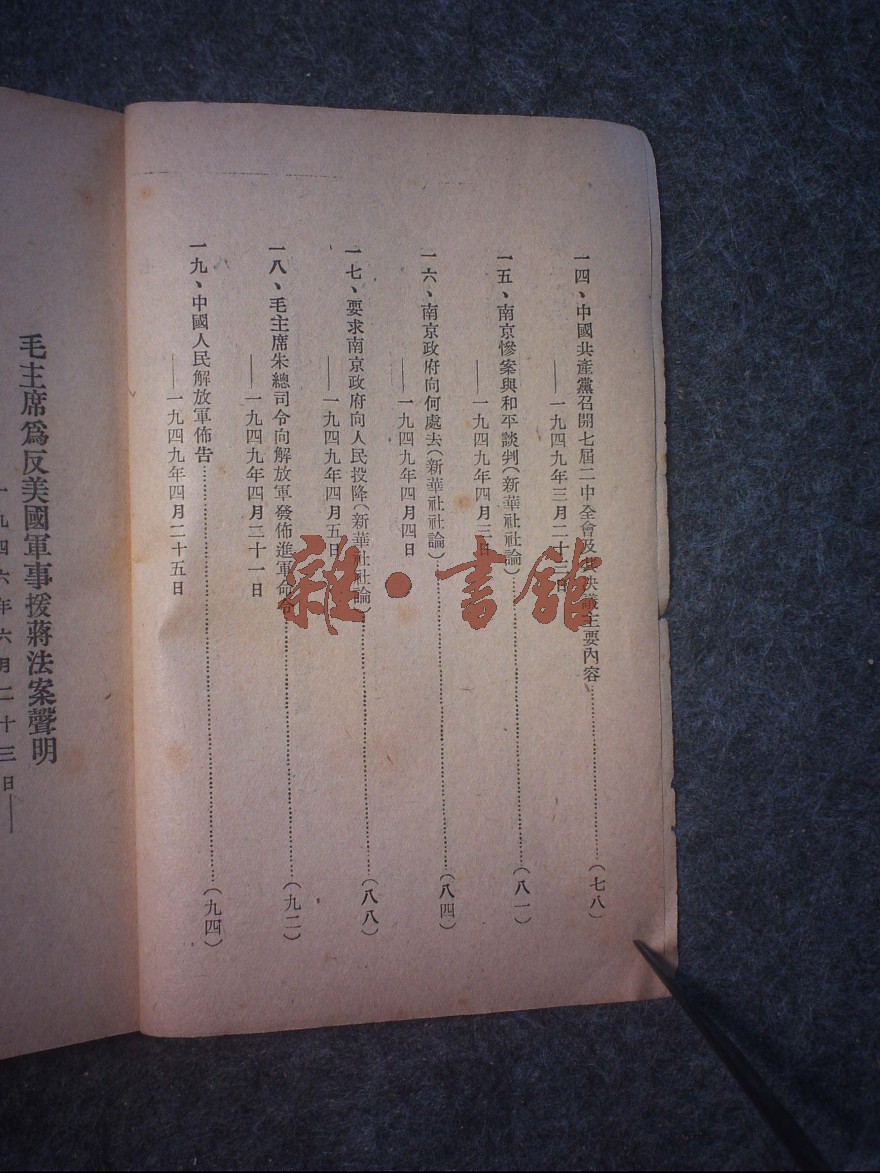 一四、中國共產黨召開七屆二中全會及其決議主要內容……(七八)
——一九四九年三月二十三日
一五、南京慘案與和平談判(新華社社論)……(八一)
——一九四九年四月三日
一六、南京政府向何處去(新華社社論)……(八四)
——一九四九年四月四日
一七、要求南京政府向人民投降(新華社社論)……(八八)
——一九四九年四月五日
一八、毛主席朱總司令向解放軍發佈進軍命令……(九二)
——一九四九年四月二十一日
一九、中國人民解放軍佈告……(九四)
——一九四九年四月二十五日
毛主席爲反美國軍事援蔣法案聲明
一九四六年六月二十三日——
雜·書館